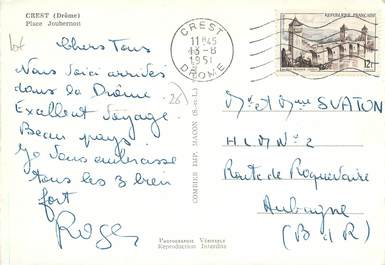 CREST (Drôme)
Place Joubernon
Chers Tous
Nous voici arrivés
dans la Drôme.
Excellent voyage.
Beau pays.
Je vous embrasse
tous les 3 bien
fort
Roger
COMBIER IMP. MACON (S.-et-L.)
PHOTOGRAPHIE VÉRITABLE
Reproduction Interdite
CREST
DROME
RÉPUBLIQUE FRANÇAISE
12F
Mr et Mme SVATON
HLM N°2
Route de Roquevaire
Aubagne
(B d R)